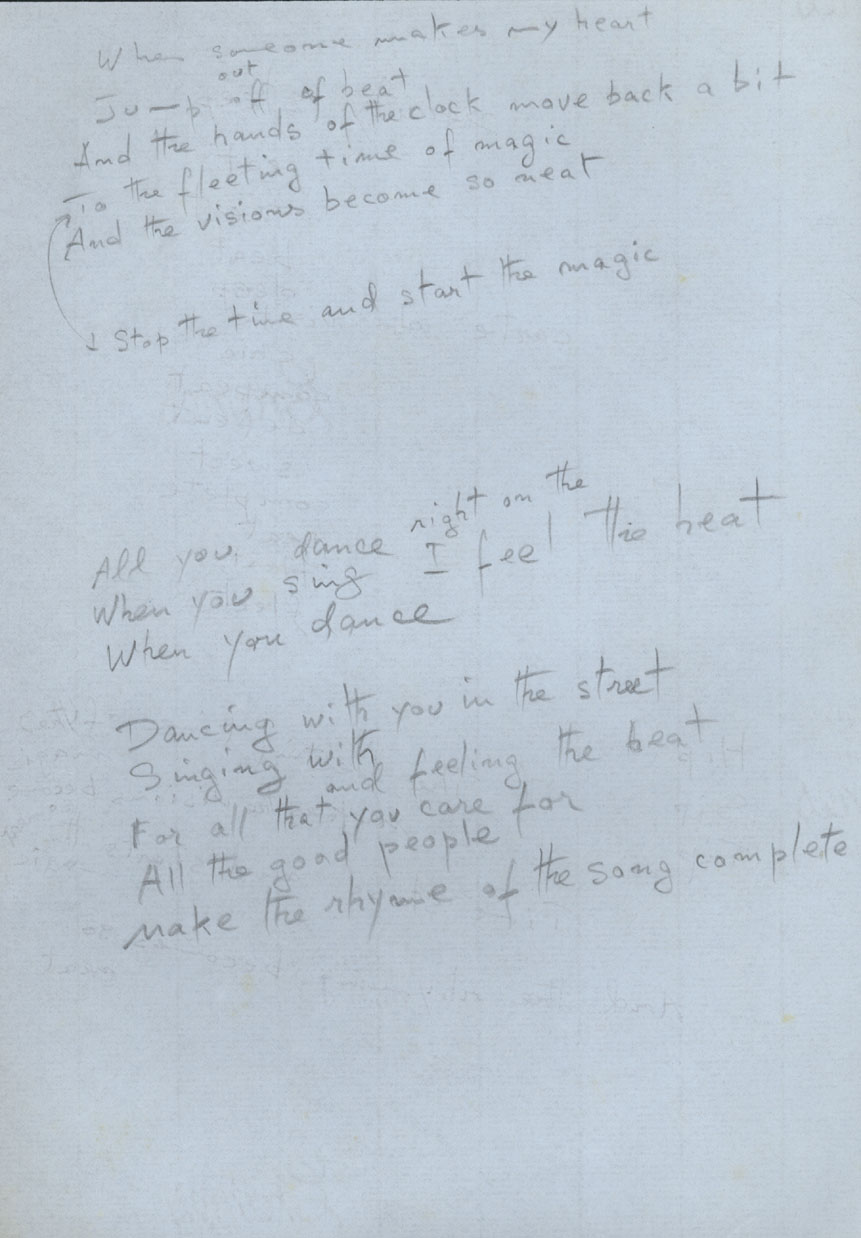 When someone makes my heart
out
Jump off of beat
And the hands of the clock move back a bit
To the fleeting time of magic
And the visions become so neat
Stop the time and start the magic
right on the
All you dance
When you sing I feel the beat
When you dance
Dancing with you in the street
Singing with
and feeling the beat
For all that you care for
All the good people
Make the rhyme of the song complete